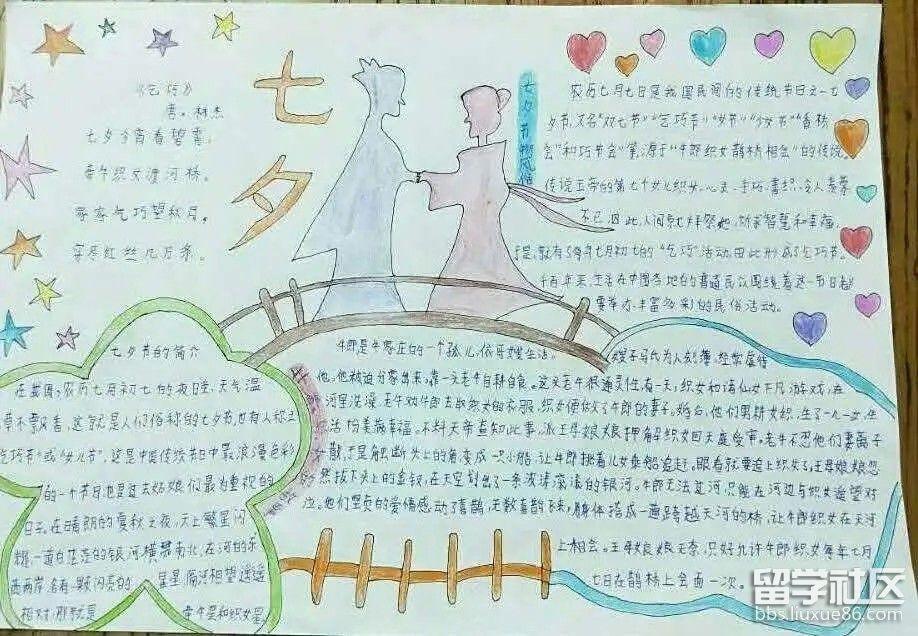 七夕
《乞巧》
唐。林杰
七夕今宵看碧霄,
牵牛织女渡河桥。
家家乞巧望秋月,
穿尽红丝几万条。
七夕节的风俗
农历七月七日是我国民间的传统节日之一七
夕节,又名"双七节""乞巧节""女节""少女节""香桥
会"和巧节会"等,源于"牛郎织女鹊桥相会"的传说。
传说王帝的第七个女儿织女,心灵、手巧、善织,令人羡慕
不已因此,人间就拜祭她,祈求智慧和幸福,
于是,就有了每年七月初七的"乞巧"活动由此形成乞巧节。
千百年来,生活在中国各地的普通民众围绕着这一节日都
要举办丰富多彩的民俗活动。
七夕节的简介
在我国,农历七月初七的夜晚,天气温
草木飘香,这就是人们俗称的七夕节,也有人称之
乞巧节"或"女儿节",这是中国传统节日中最浪漫色彩
的一个节日也是过去姑娘们最为重视的
日子。在晴朗的夏秋之夜,天上繁星闪
耀,一道白茫茫的银河横贯南北,在河的东
西两岸,各有一颗闪亮的星星,隔河相望,遥遥
相对,那就是牵牛星和织女星
牛郎是牛家庄的一个孤儿,依哥嫂生活。嫂子马氏为人刻薄,经常虐待
他,他被迫分家出来,靠一头老牛自耕自食。这头老牛很通灵性有一天,织女和诸仙女下凡游戏,在
河里洗澡,老牛劝牛郎去取织女的衣服,织女便做了牛郎的妻子。婚后,他们男耕女织,生了一儿一女,生
活十分美满幸福。不料天帝查知此事,派王母娘娘押解织女回天庭受审。老牛不忍他们妻离子
散,于是触断头上的角变成一只小船,让牛郎挑着儿女乘船追赶。眼看就要追上织女了,王母娘娘忽
然拔下头上的金钗,在天空划出了一条波涛滚滚的银河。牛郎无法过河,只能在河边与织女遥望对
泣。他们坚贞的爱情感动了喜鹊,无数喜鹊飞来,用身体搭成一道跨越天河的桥,让牛郎织女在天河
上相会。王母娘娘无奈,只好允许牛郎织女每年七月
七日在鹊桥上会面一次。
留学社区
bbs.liuxue86.com